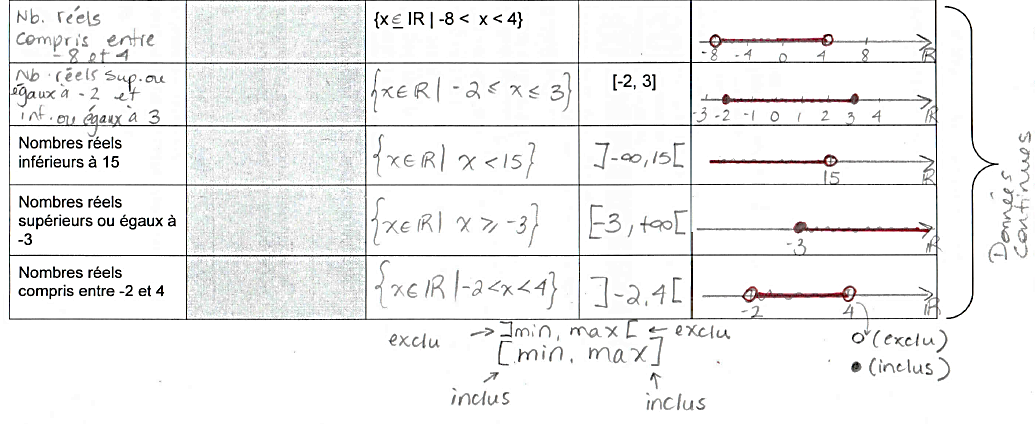 Nb. réels
compris entre
-8 et 4
{x ∈ IR | -8 < x < 4}
-8 -4 0 4 8 IR
Nb. réels sup. ou
égaux à -2 et
inf. ou égaux à 3
{x ∈ IR | -2 ≤ x ≤ 3}
[-2, 3]
-3 -2 -1 0 1 2 3 4 IR
Nombres réels
inférieurs à 15
{x ∈ IR | x < 15}
]-∞, 15[
15 IR
Nombres réels
supérieurs ou égaux à
-3
{x ∈ IR | x ≥ -3}
[-3, +∞[
-3 IR
Nombres réels
compris entre -2 et 4
{x ∈ IR | -2 < x < 4}
]-2, 4[
-2 4 IR
Données
continues
exclu → ]min, max[ ← exclu
[min, max]
inclus inclus
o (exclu)
• (inclus)